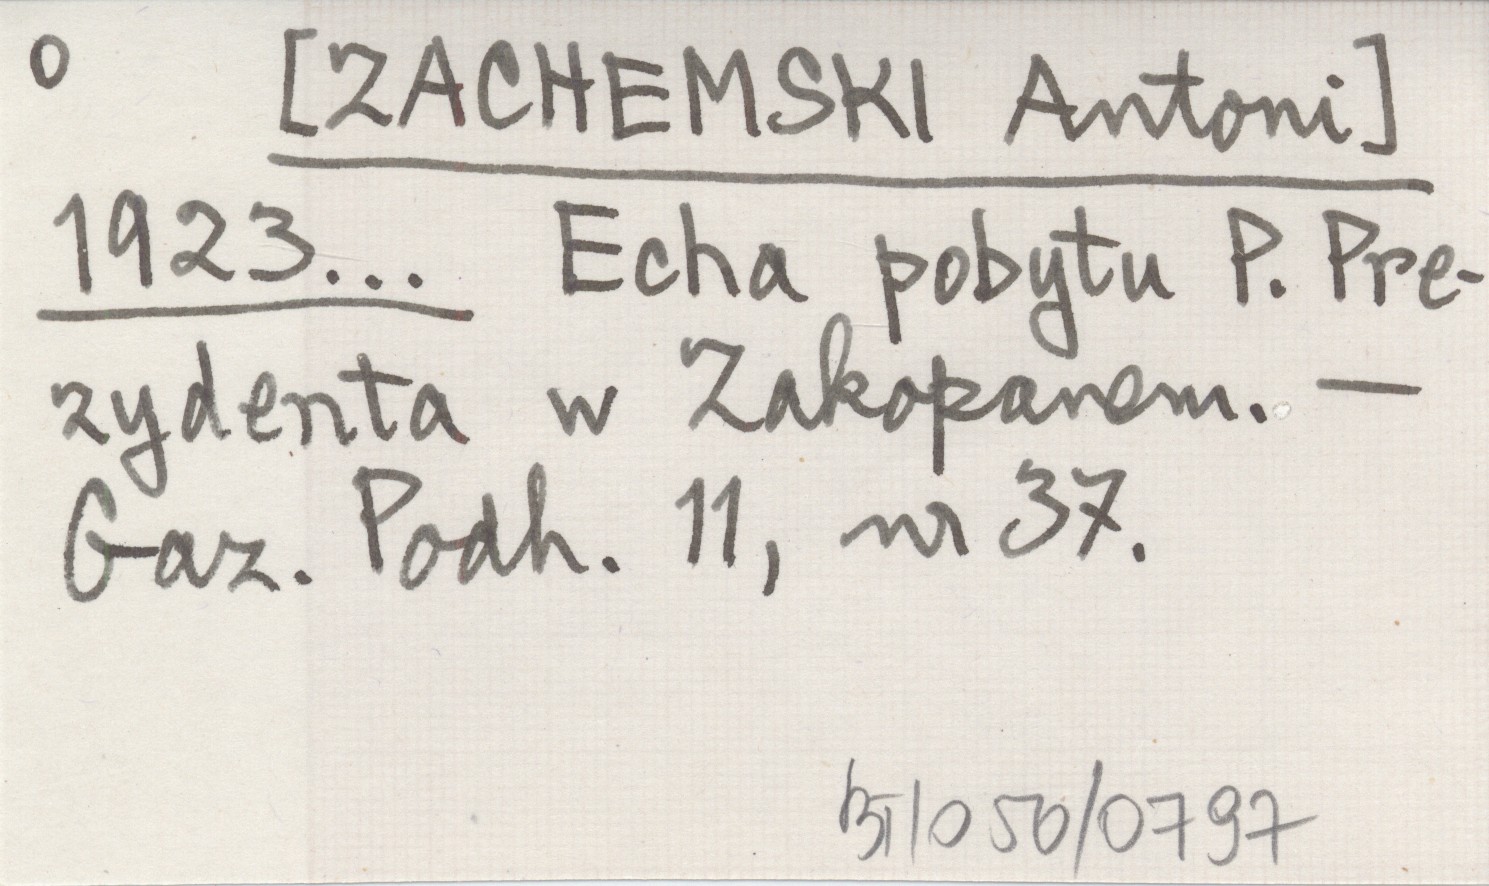 o [ZACHEMSKI Antoni]
1923... Echa pobytu P. Pre-
zydenta w Zakopanem. —
Gaz. Podh. 11, nr 37.
BT/050/0797